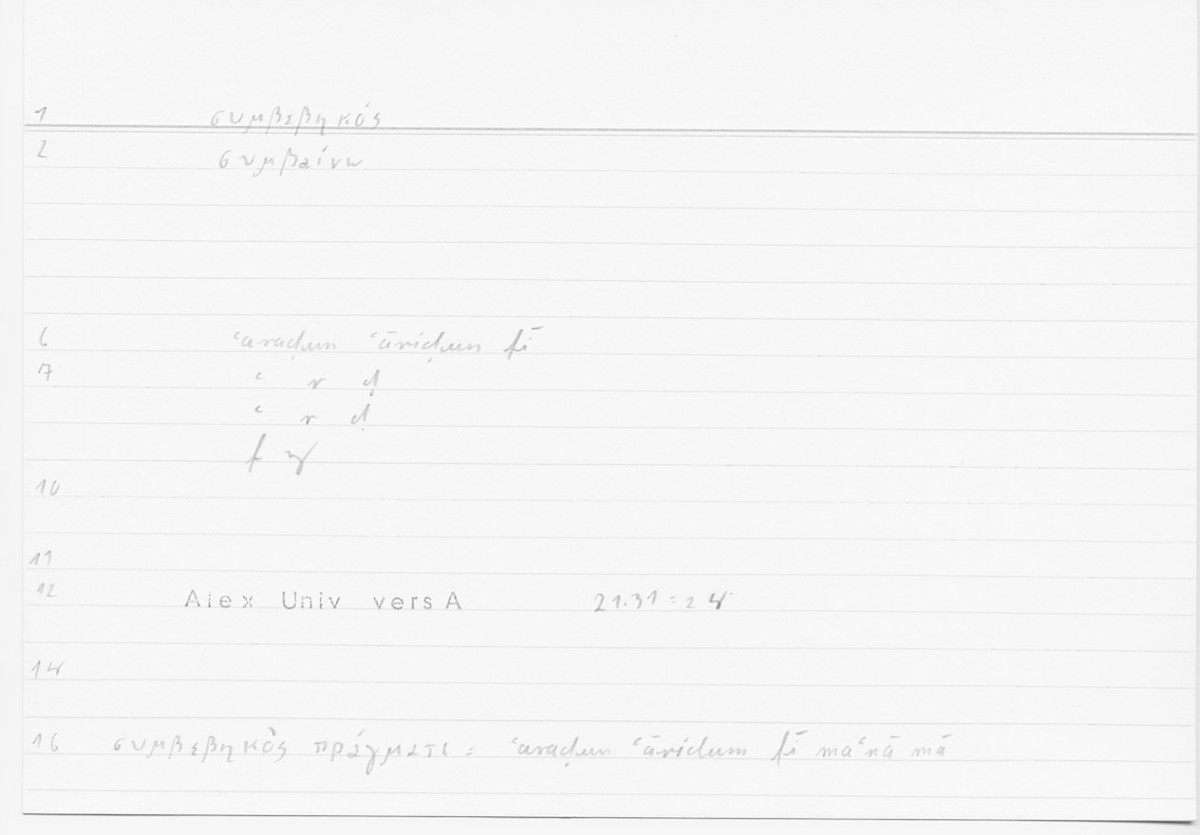 1 συμβεβηκός
2 συμβαίνω
6 ʿaraḍun ʿāriḍun fī
7 ʿ r ḍ
ʿ r ḍ
f y
10
11
12 Alex Univ vers A 21.31 = 2 4
14
16 συμβεβηκὸς πράγματι = ʿaraḍun ʿāridum fī maʿnā mā